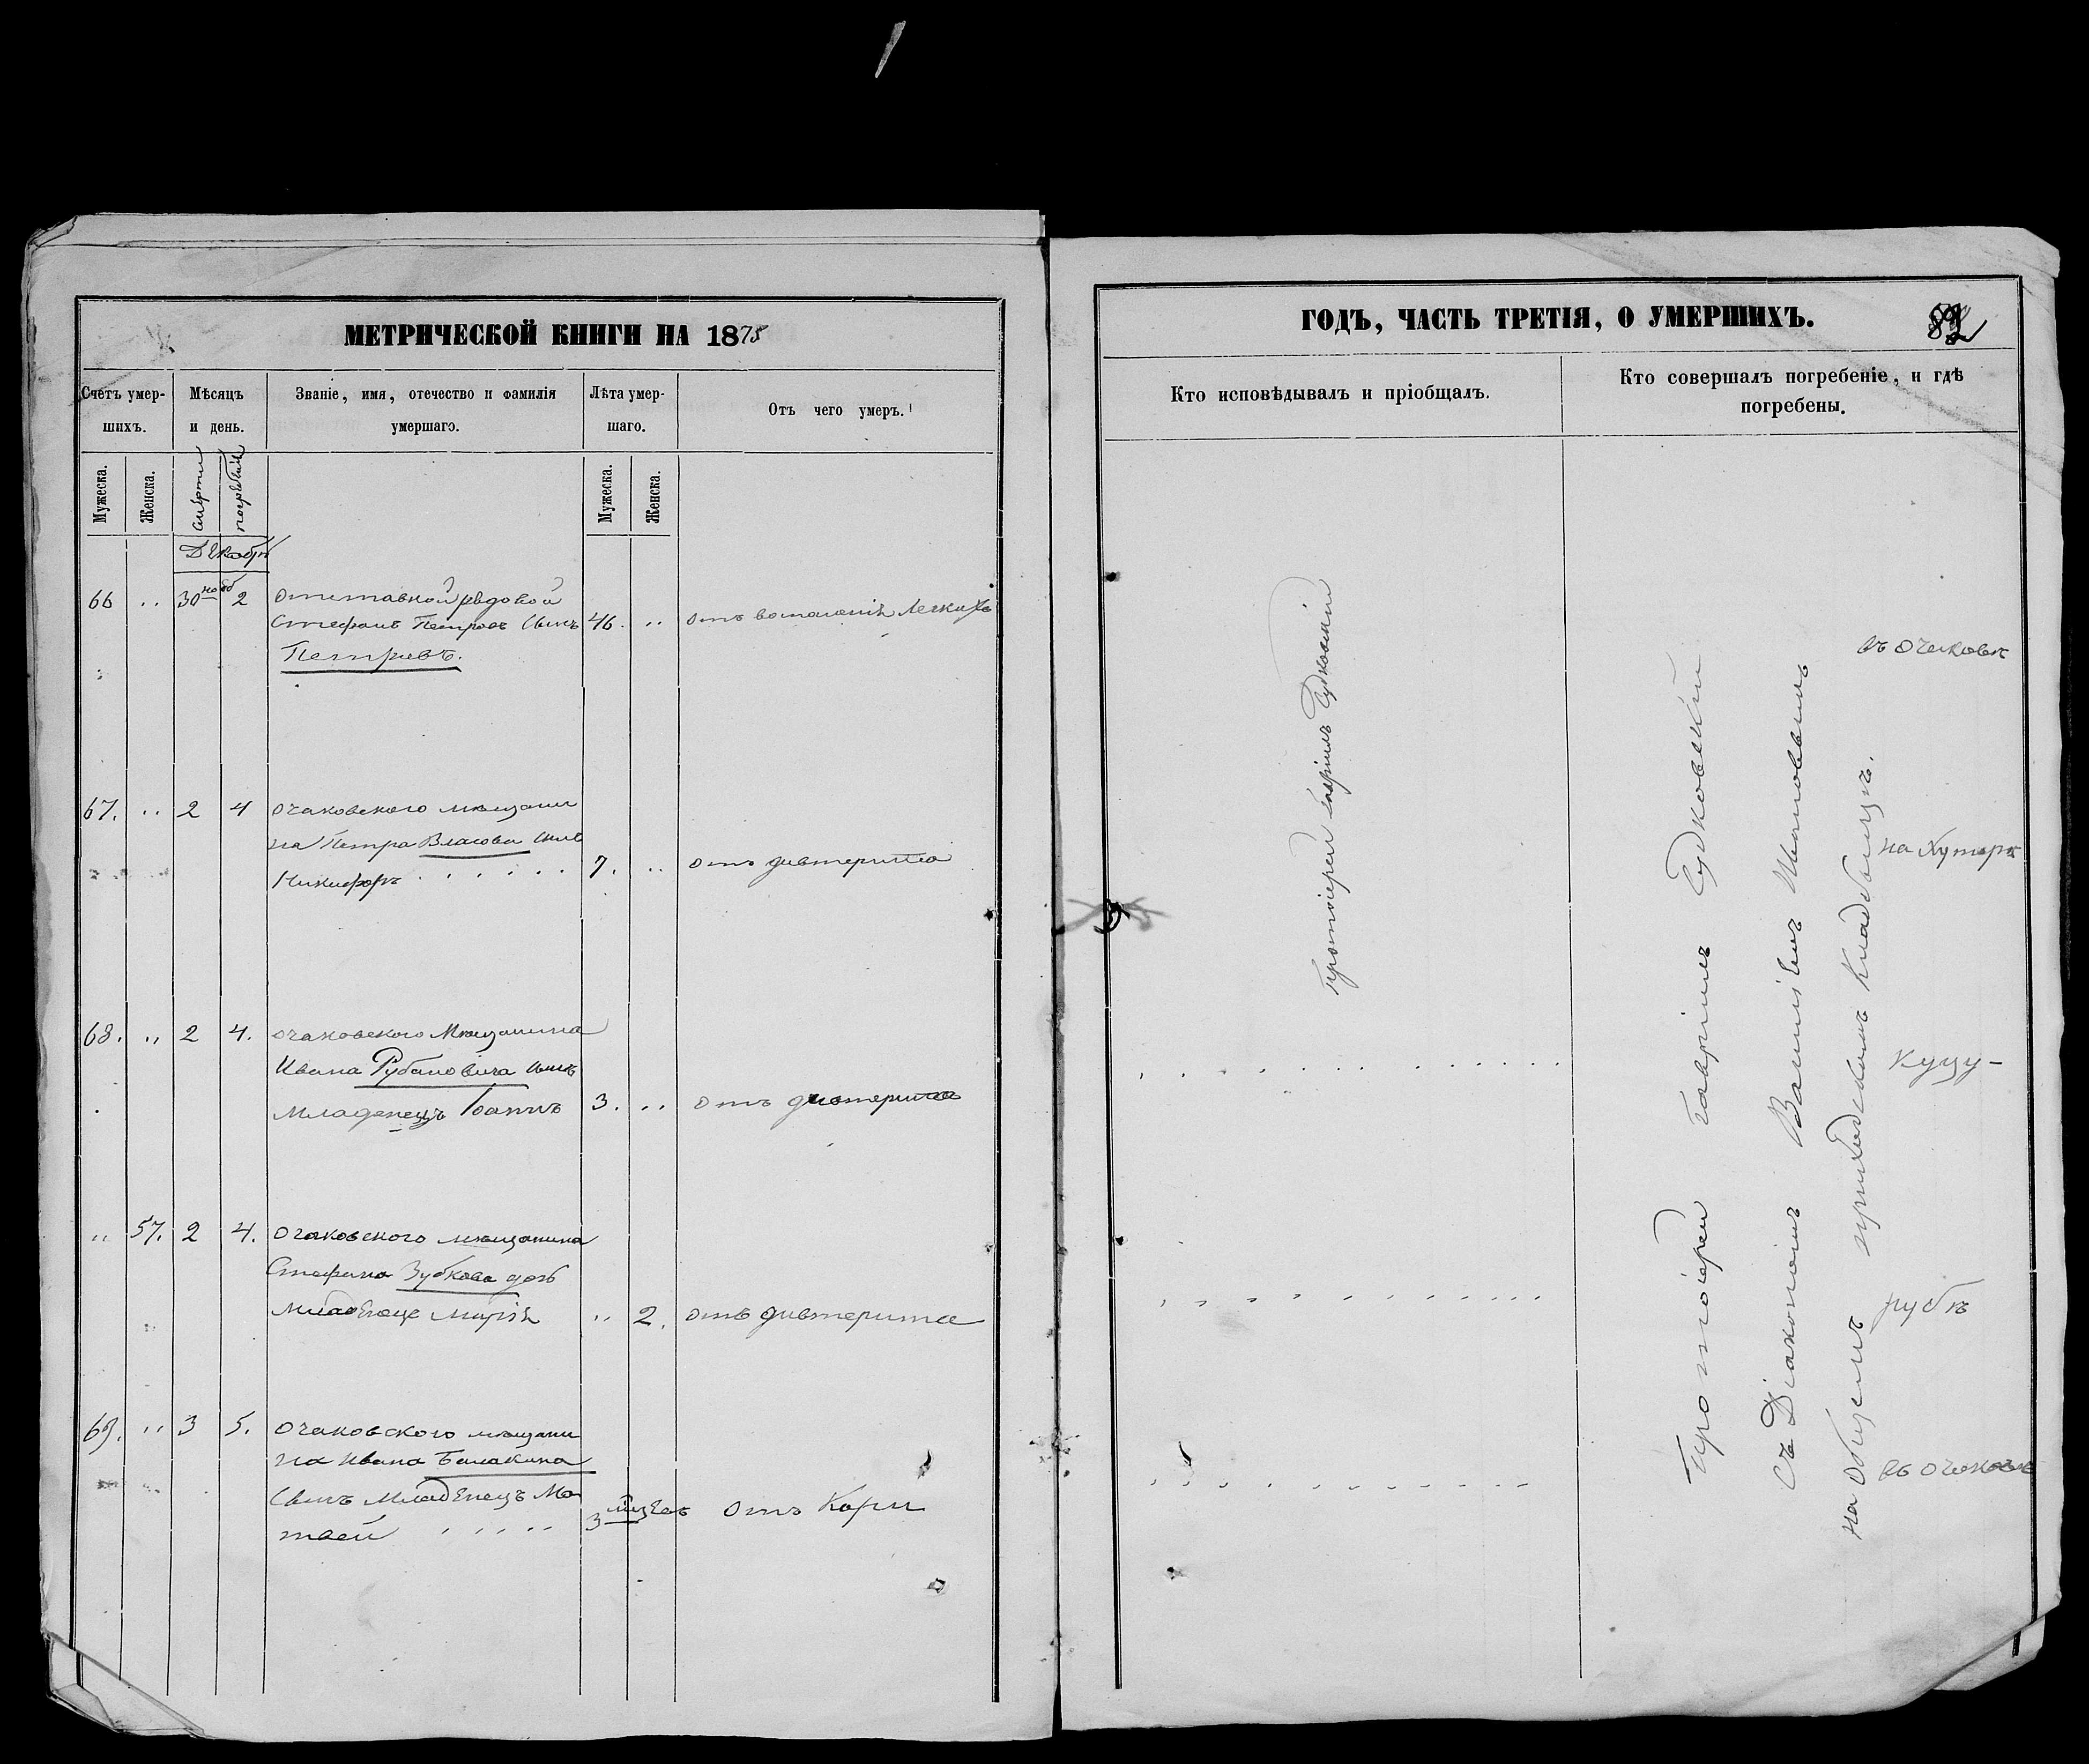 МЕТРИЧЕСКОЙ КНИГИ НА 1875
Счетъ умер-
шихъ.
Мѣсяцъ
и день.
Званіе, имя, отечество и фамилія
умершаго.
Лѣта умер-
шаго.
Отъ чего умеръ.
Мужеска.
Женска.
смерти
Мужеска.
Женска.
Декабрь
66 .. 30 нояб 2 отставной рядовой
Стефанъ Петровъ сынъ 46. .. отъ воспаленія легкихъ
Петровъ.
67. .. 2 4 очаковского мѣщани
на Петра Власова сынъ
Никифоръ 7. .. отъ дивтерита
68. .. 2 4. очаковского мѣщанина
Ивана Рубановича сынъ
младенецъ Іоаннъ 3. .. отъ дивтерита
.. 57. 2 4. очаковского мѣщанина
Стефана Зубкова дочь
младенецъ Марія .. 2. отъ дивтерита
69. .. 3 5. очаковского мѣщани
на Ивана Балакина
сынъ младенецъ Ма
твей 3 мѣсяц отъ Кори
ГОДЪ, ЧАСТЬ ТРЕТІЯ, О УМЕРШИХЪ.
82
Кто исповѣдывалъ и пріобщалъ.
Кто совершалъ погребеніе, и гдѣ
погребены.
Протоіерей Гавріилъ Судковскій
Протоіерей Гавріилъ Судковскій
съ Діакономъ Василіемъ
на общемъ приходскомъ кладбищѣ.
въ Очаковѣ
на Хуторѣ
Куцу-
рубѣ
въ Очаковѣ